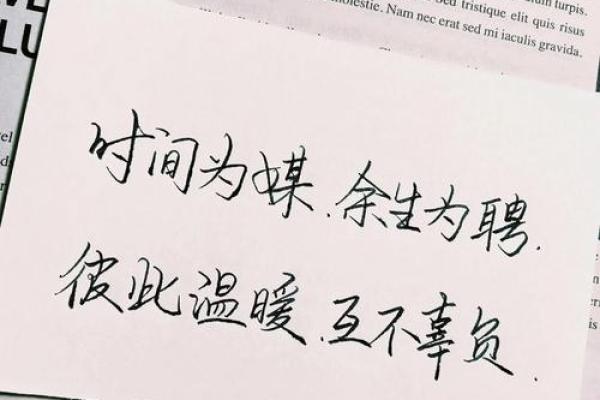 turpis.
molestie. Nam nec erat sed mi iaculis gravida.
tristique elit quis risus
时间为媒、余生为聘、
彼此温暖、互不辜负、